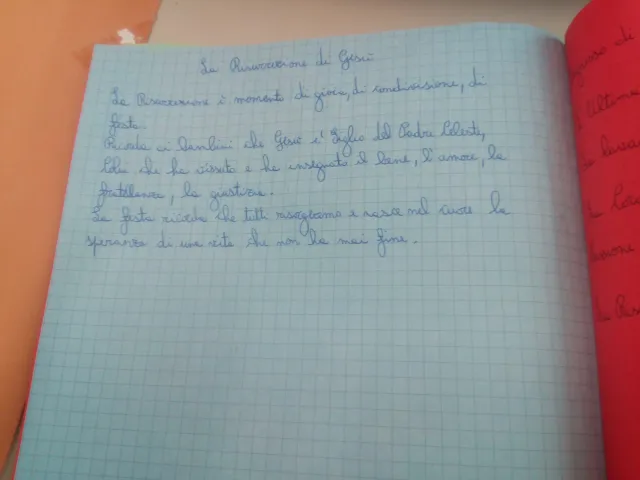 La Risurrezione di Gesù
La Risurrezione è momento di gioia, di condivisione, di
festa.
Ricorda ai bambini che Gesù è figlio del Padre Celeste,
Colui che ha vissuto e ha insegnato il bene, l'amore, la
fratellanza, la giustizia.
La festa ricorda che tutti risorgeremo e nasce nel cuore la
speranza di una vita che non ha mai fine.
di
Ultima